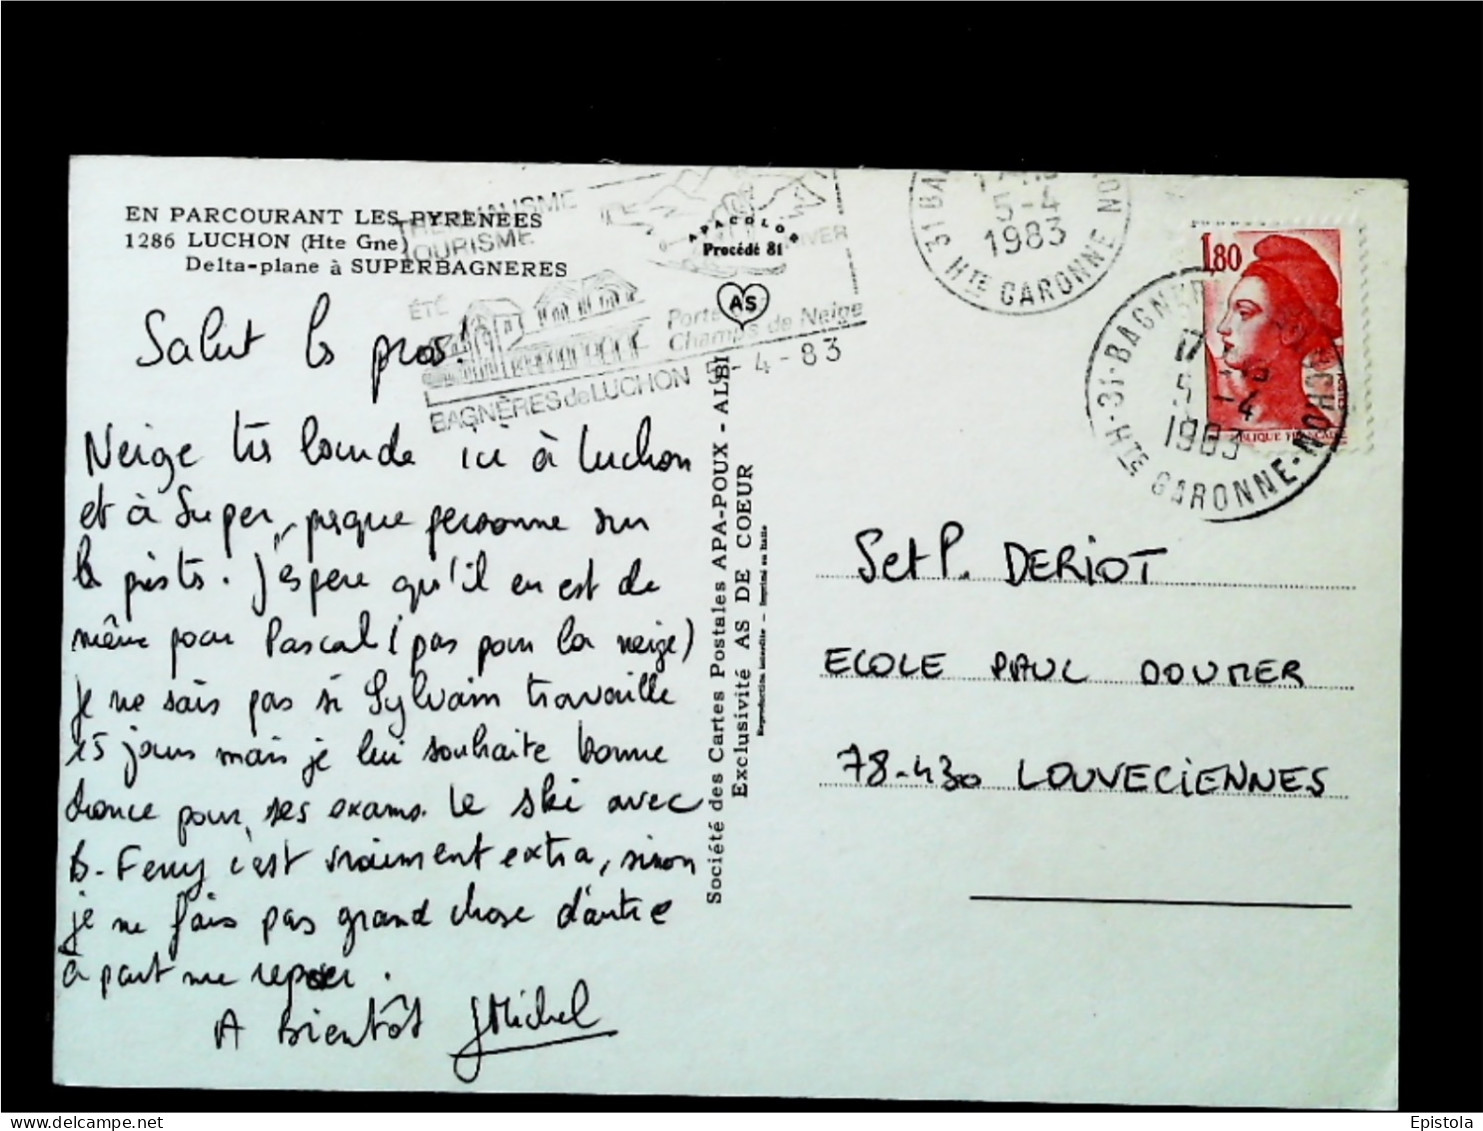 EN PARCOURANT LES PYRENEES
1286 LUCHON (Hte Gne)
Delta-plane à SUPERBAGNERES
THERMALISME
TOURISME
ÉTÉ
HIVER
Porte
Champs de Neige
BAGNÈRES de LUCHON
5-4-83
APACOLOR
Procédé 81
AS
Salut ls pros!
Neige très lourde ici à Luchon
et à Super, presque personne sur
ls pistes. J'espère qu'il en est de
même pour Pascal (pas pour la neige)
Je ne sais pas si Sylvain travaille
15 jours mais je lui souhaite bonne
chance pour ses exams. Le ski avec
B. Ferry c'est vraiment extra, sinon
je ne fais pas grand chose d'autre
à part me reposer.
A Bientôt JMichel
Société des Cartes Postales APA-POUX - ALBI
Exclusivité AS DE COEUR
Reproduction interdite - Imprimé en Italie
5-4
1983
HTE GARONNE
1,80
31-BAGNERES
17
5-4
1983
HTE GARONNE
S et P. DERIOT
ECOLE PAUL DOUMER
78-430 LOUVECIENNES
delcampe.net
Epistola